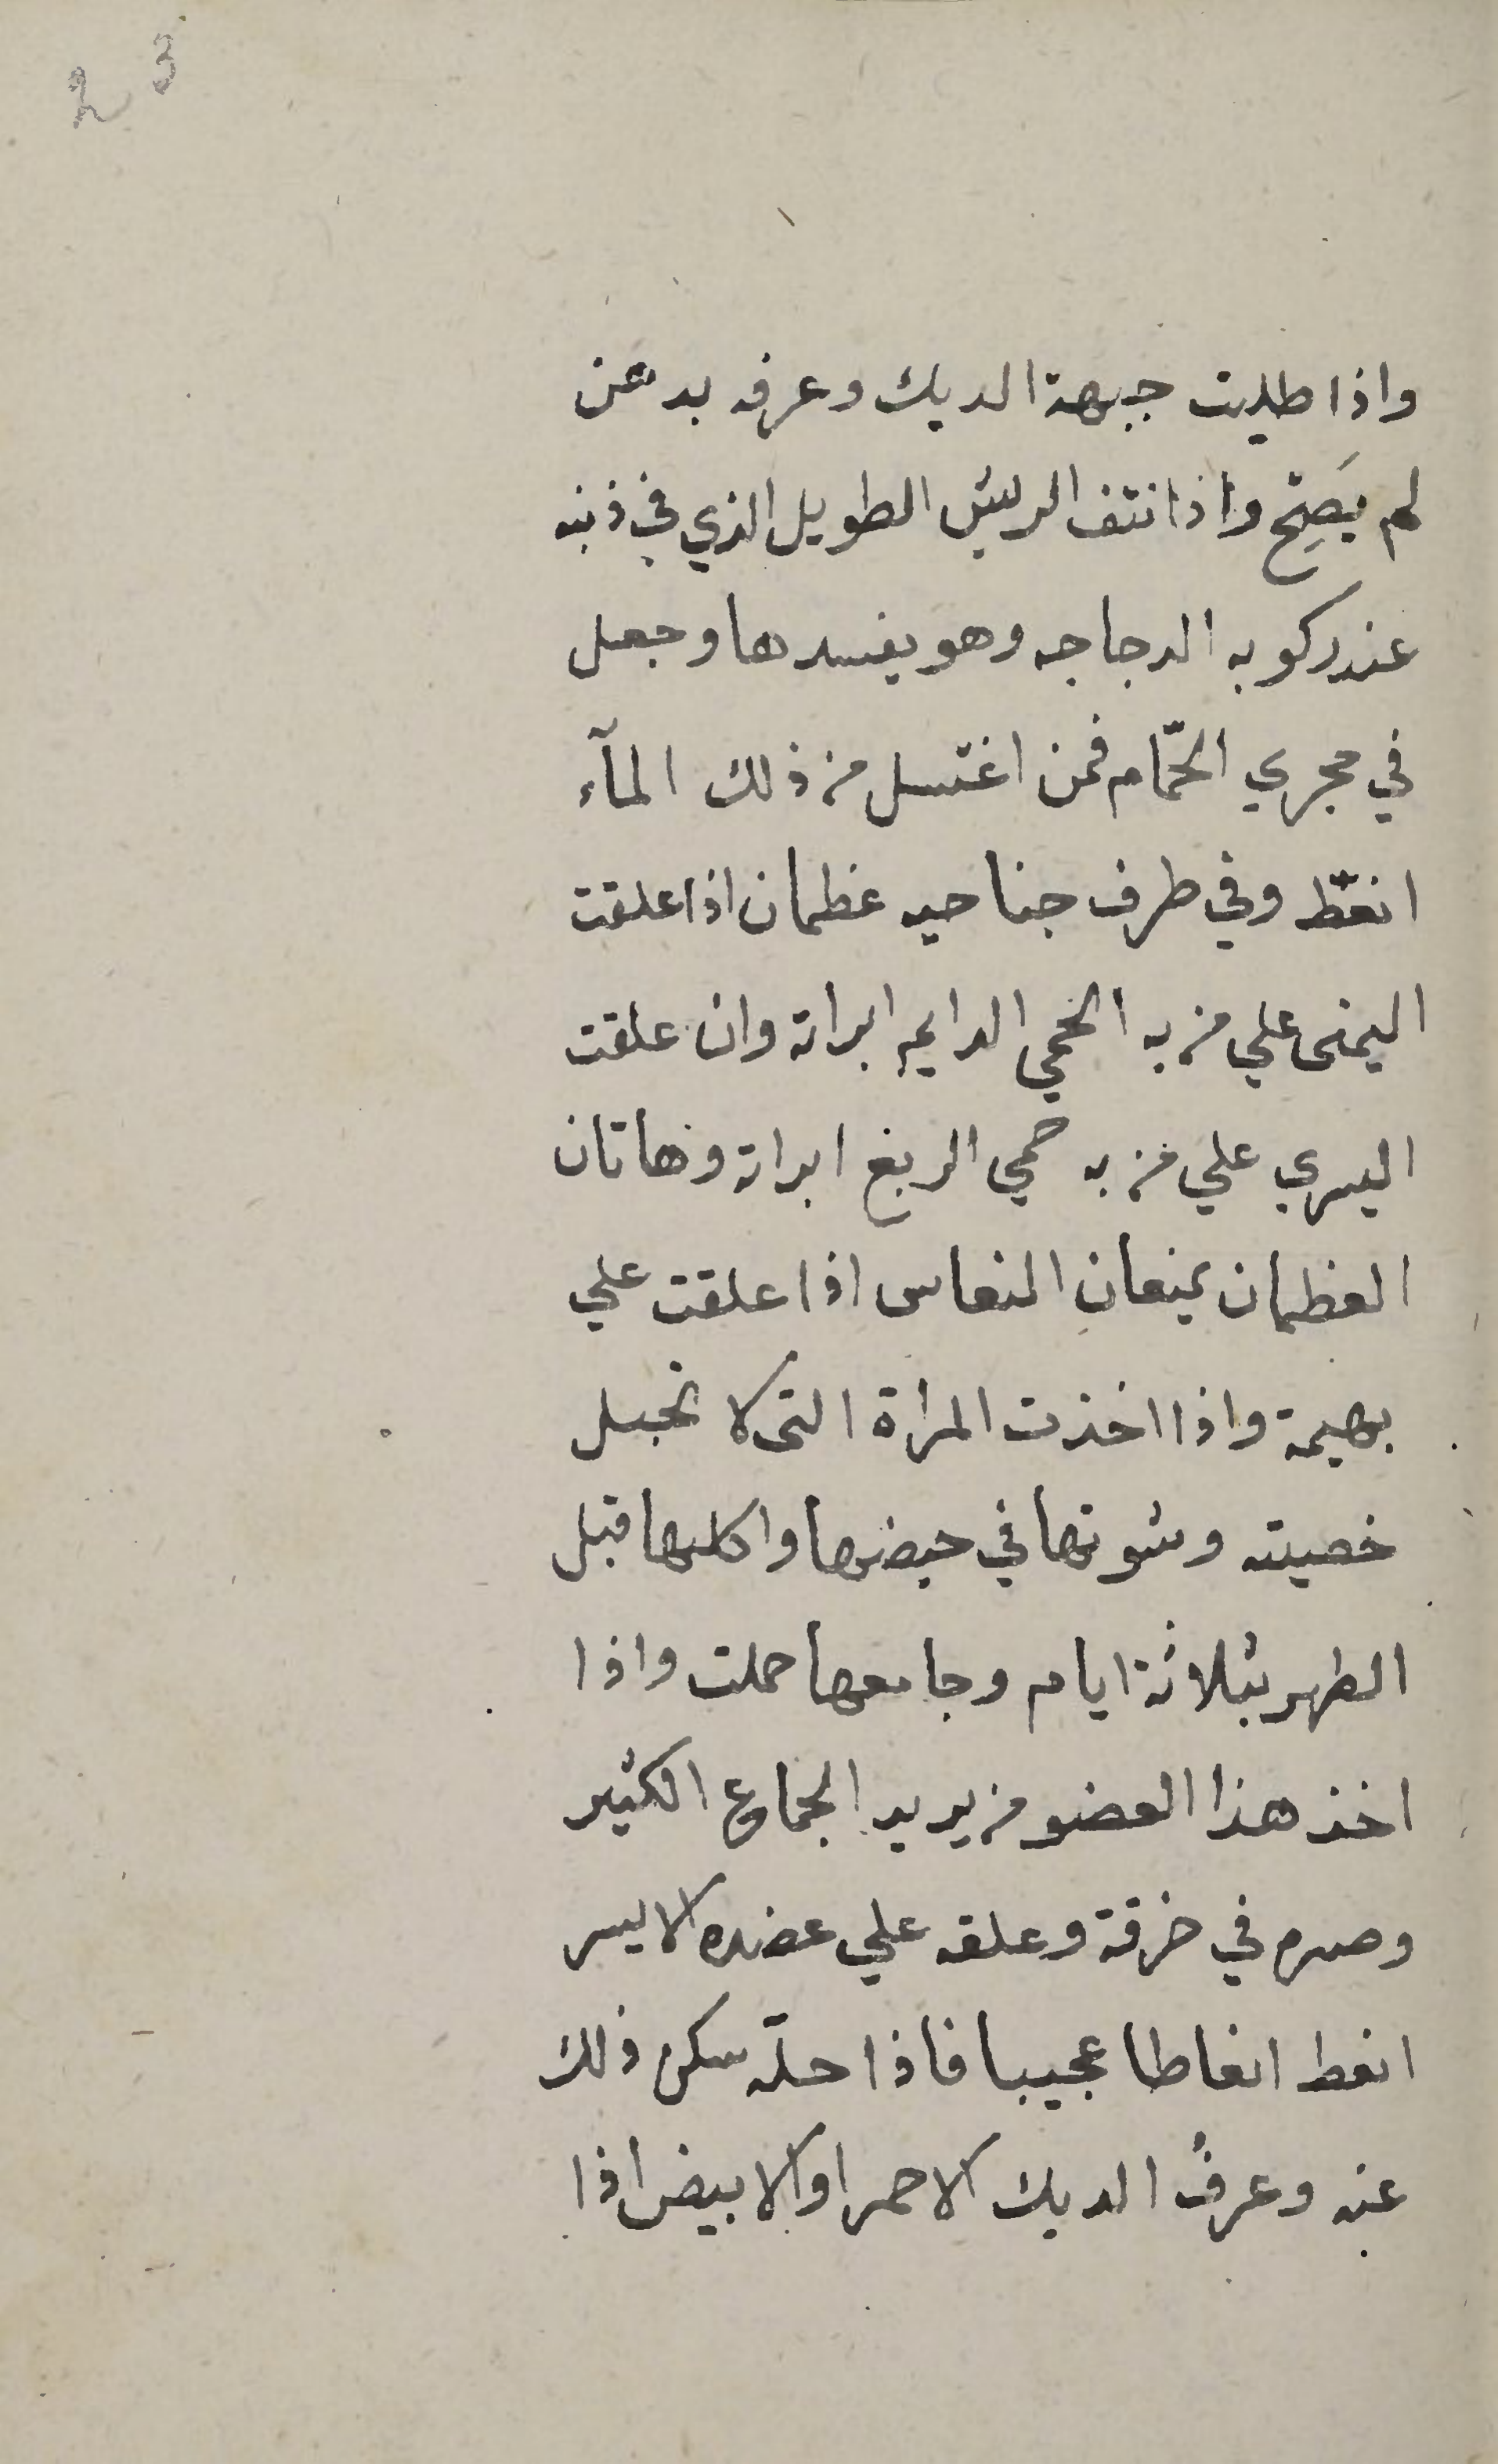 23
واذا طليت جبهة الديك وعرفه بدهن
لم يَصِح واذا نتف الريش الطويل الذي في ذنبه
عند ركوبه الدجاجه وهو يفسدها وجعل
في مجري الحمّام فمن اغتسل من ذلك المآء
انعظ وفي طرف جناحيه عظمان اذا علقت
اليمنى علي من به الحمي الدايمه ابراته وان علقت
اليسري علي من به حمي الربع ابراته وهاتان
العظمان يمنعان النعاس اذا علقت علي
بهيمة واذا اخذت المراة التى لا تحبل
خصيته وشوتها في حيضها واكلها قبل
الطهر بثلاثة ايام وجامعها حملت واذا
اخذ هذا العضو من يريد الجماع الكثير
وصره في خرقة وعلقه علي عضده الايسر
انعط انعاطا عجيبا فاذا حلّه سكن ذلك
عنه وعرفُ الديك الاحمر او الابيض اذا